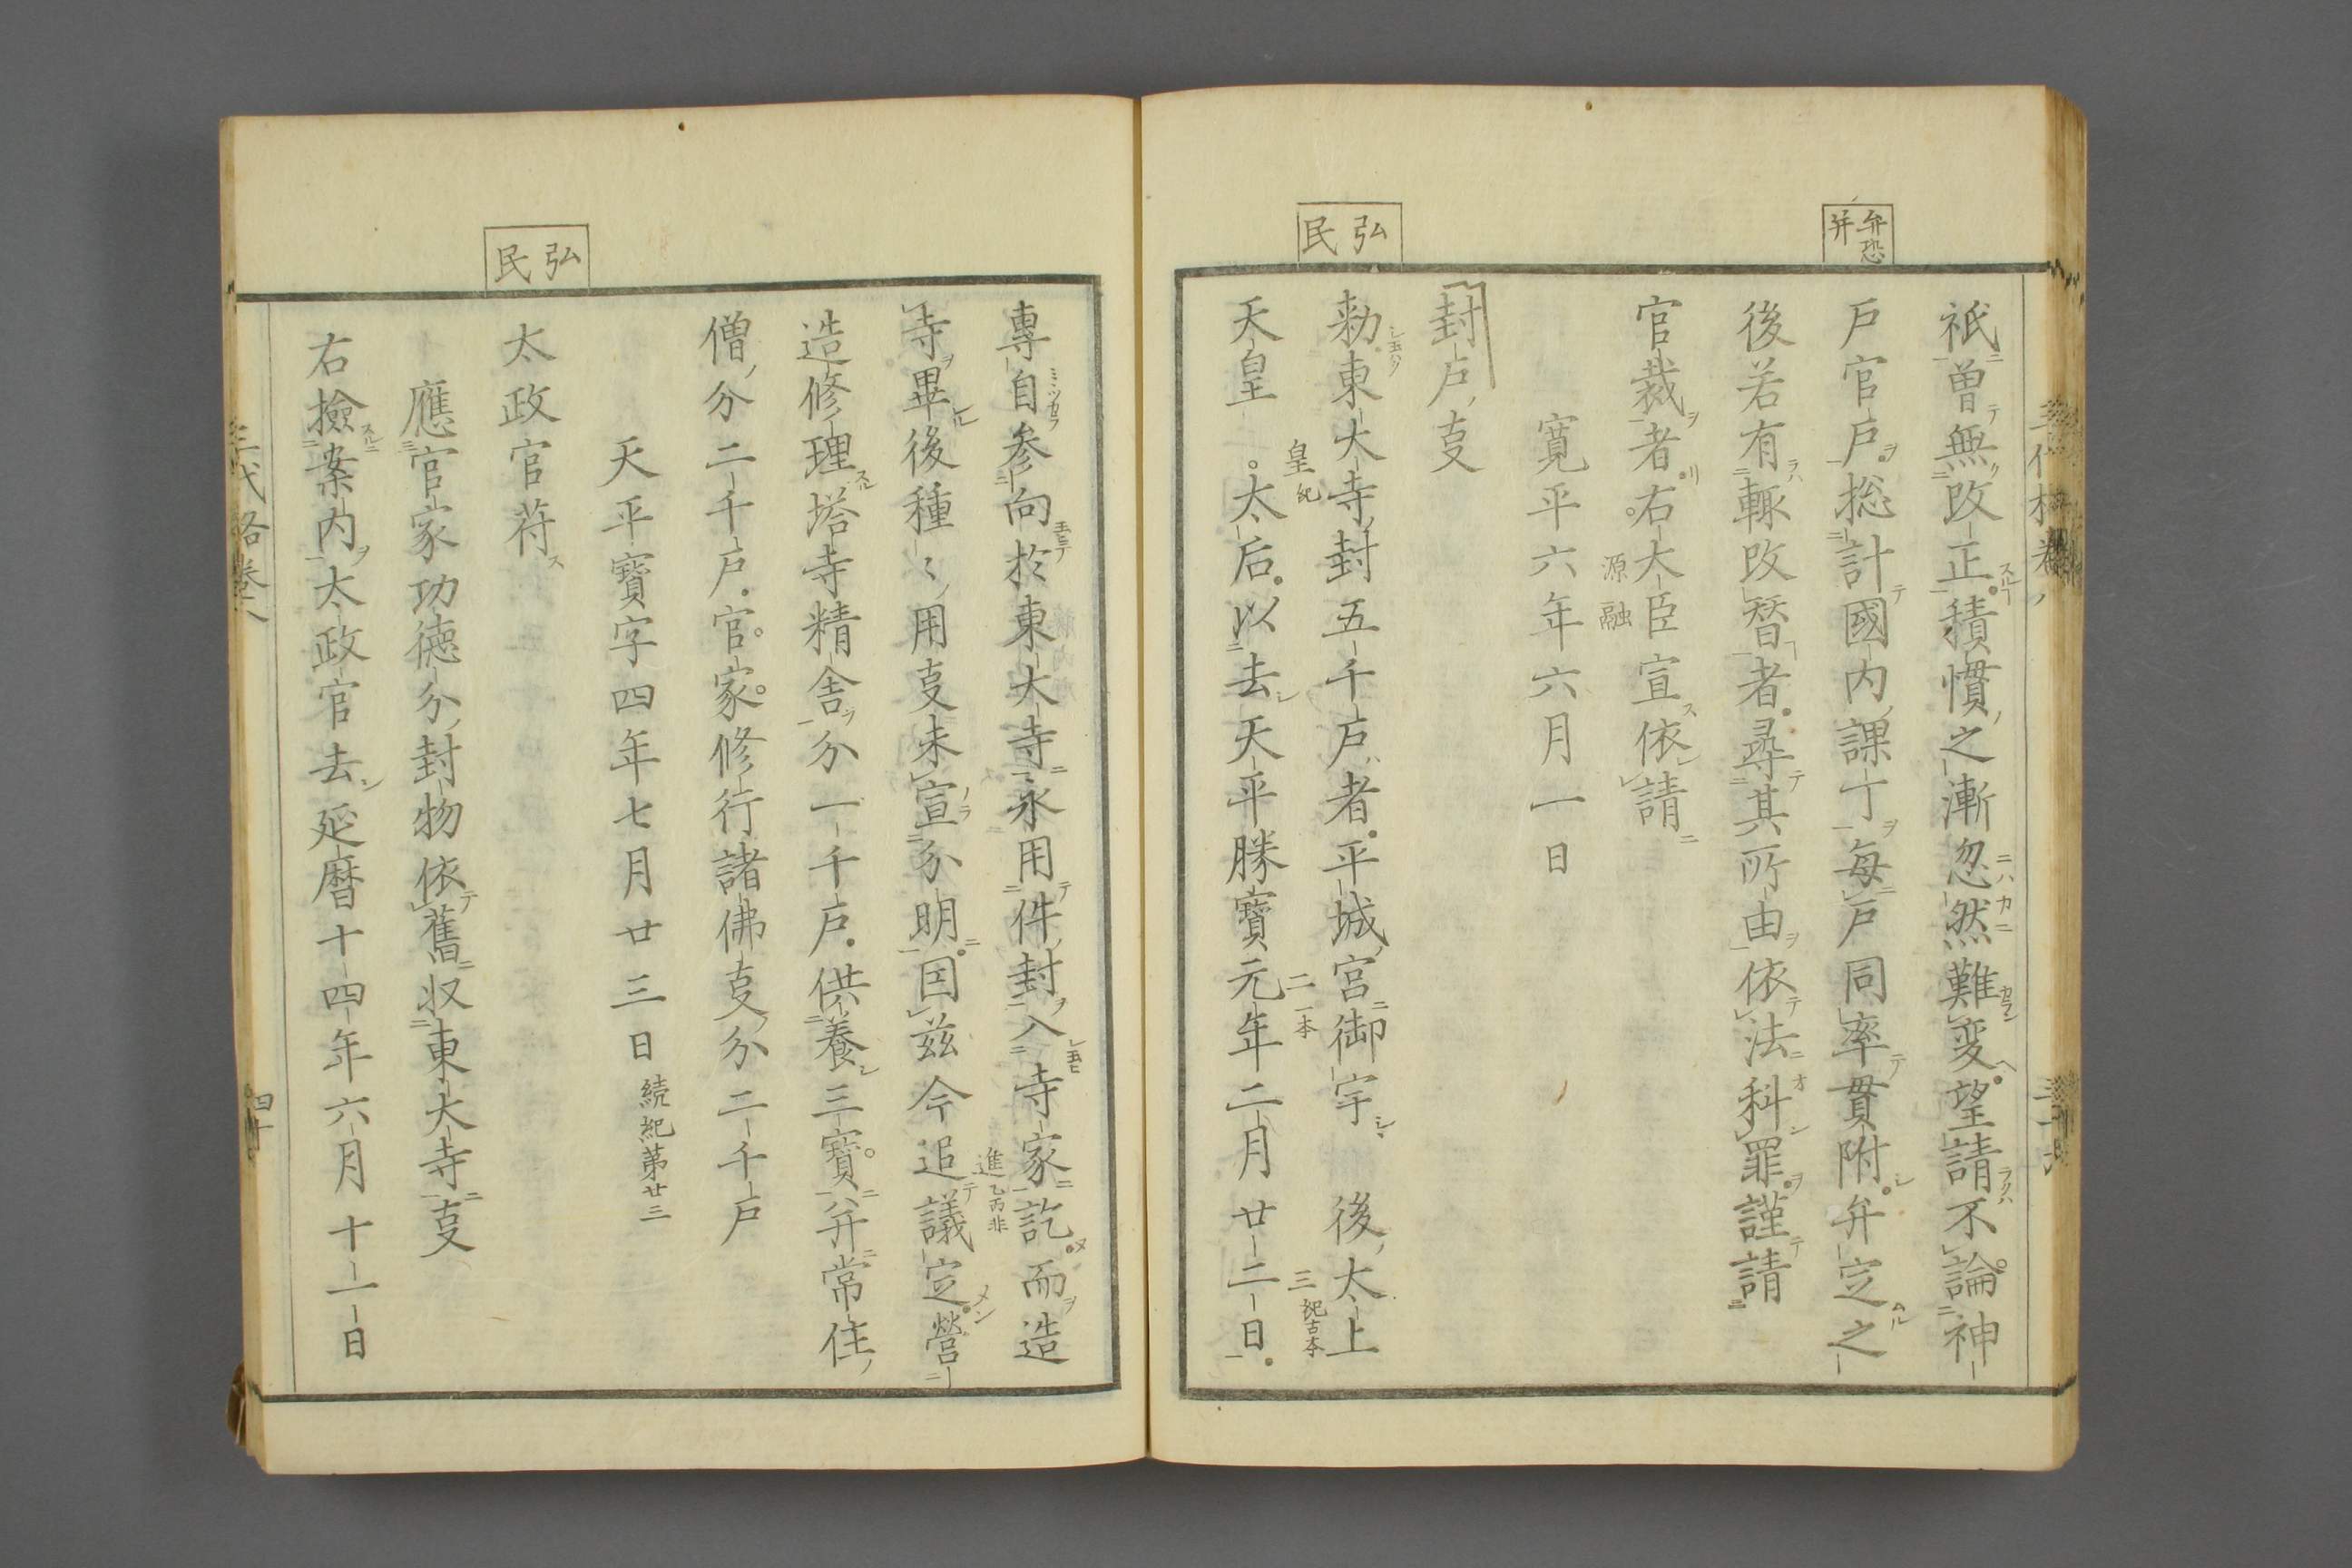 弁恐
并
祇曽無改正積慣之漸忽然難変望請不論神
戸官戸捴計國内課丁每戸同率貫附弁定之
後若有輙改替者尋其所由依法科罪謹請
官裁者右大臣宣依請
源融
寛平六年六月一日
封戸㕝
弘
民
勅東大寺封五千戸者平城宮御宇後太上
皇紀
二一本
三紀古本
天皇太后以去天平勝寶元年二月廿二日
專自参向於東大寺永用件封入寺家訖而造
寺畢後種〻用㕝未宣分明因茲今追議定營
進乙丙非
造修理塔寺精舎分一千戸供養三寶并常住
僧分二千戸官家修行諸佛㕝分二千戸
天平寳字四年七月廿三日続紀第廿三
弘
民
太政官苻
應官家功德分封物依舊収東大寺㕝
右撿案内太政官去延暦十四年六月十一日
三代格卷八
四十